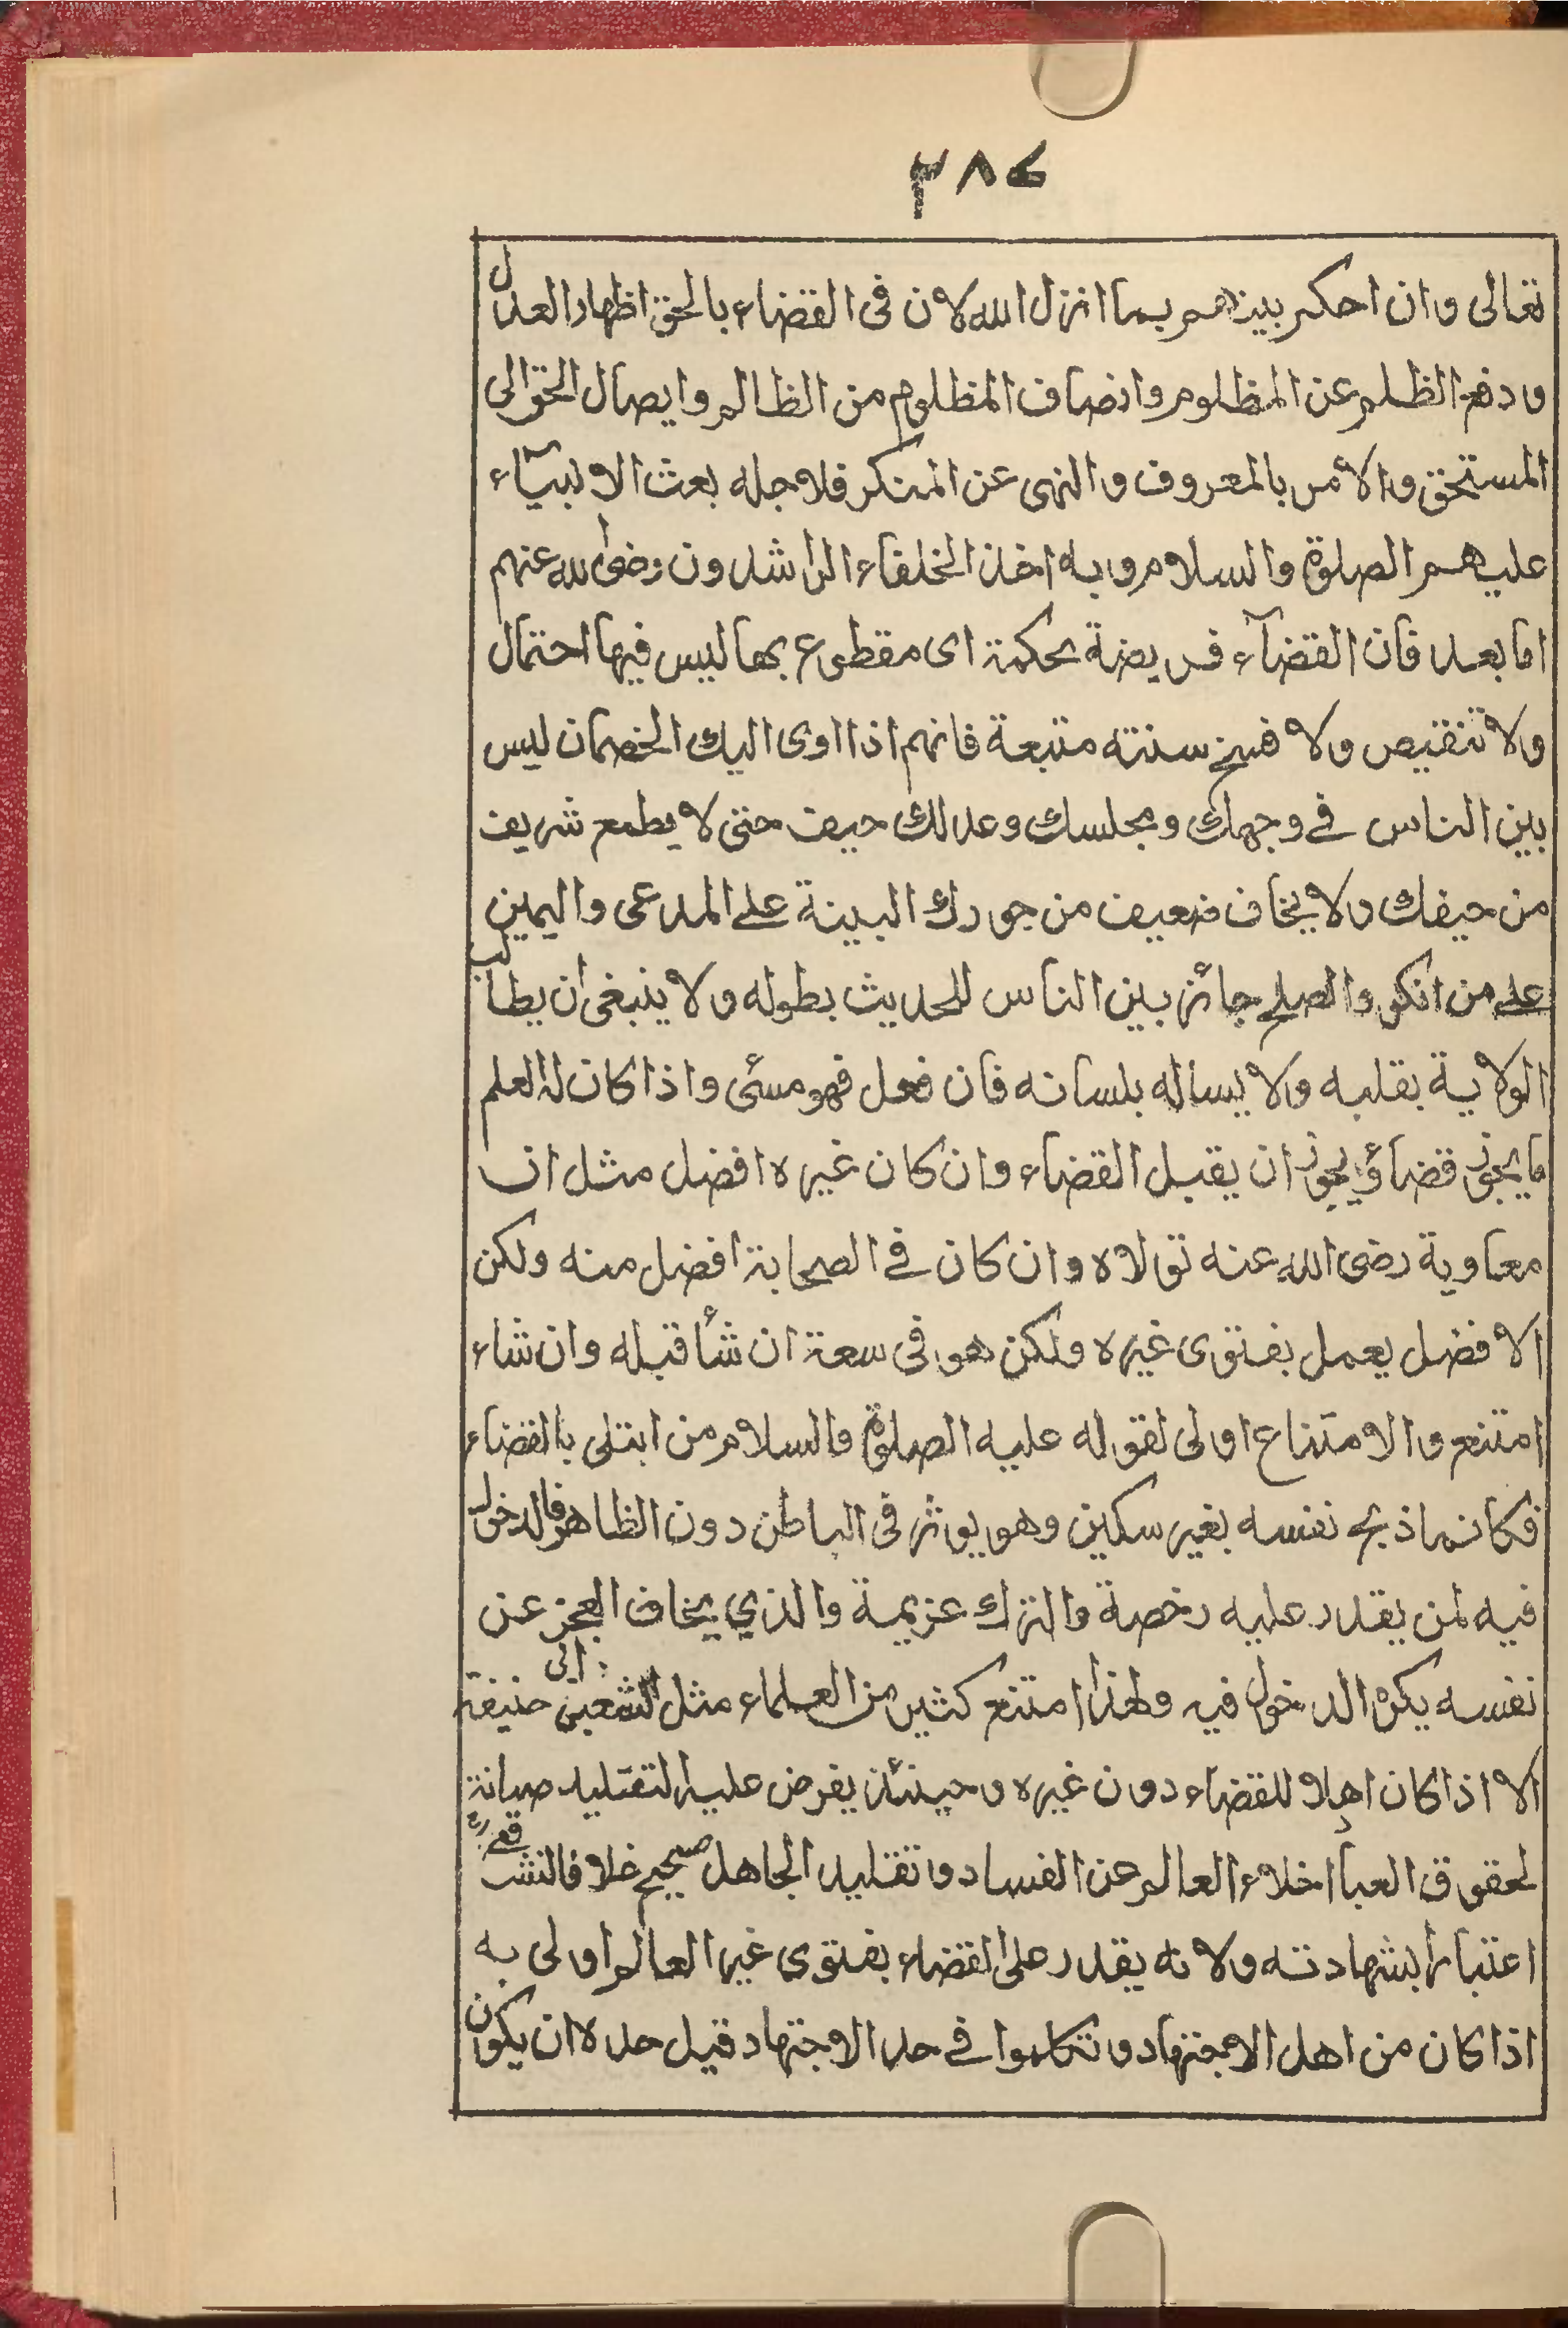 ٣٨٤
تعالى وان احكم بينهم بما انزل الله لان فى القضاء بالحق اظهار العدل
ودفع الظلم عن المظلوم وانصاف المظلوم من الظالم وايصال الحق الى
المستحق والأمر بالمعروف والنهى عن المنكر فلاجله بعث الانبيآء
عليهم الصلوة والسلام وبه اخذ الخلفاء الراشدون رضى الله عنهم
اما بعد فان القضآء فريضة محكمة اى مقطوع بها ليس فيها احتمال
ولا تنقيص ولا فسخ سنته متبعة فانهم اذا اوى اليك الخصمان ليس
بين الناس فے وجهك ومجلسك وعدلك حيف حتى لا يطمع شريف
من حيفك ولا يخاف ضعيف من جورك البينة علے المدعى واليمين
علے من انكر والصلح جائز بين الناس للحديث بطوله ولا ينبغى ان يطالب
الولاية بقلبه ولا يساله بلسانه فان فعل فهو مسئ واذا كان له العلم
ما يجوز قضاؤ يجوز ان يقبل القضاء وان كان غيره افضل مثل ان
معاوية رضى الله عنه تولاه وان كان فے الصحابة افضل منه ولكن
الافضل يعمل بفتوى غيره ولكن هو فى سعة ان شأ قبله وان شاء
امتنع والامتناع اولى لقوله عليه الصلوة والسلام من ابتلى بالقضاء
فكانما ذبح نفسه بغير سكين وهو يوثر فى الباطن دون الظاهر فالدخول
فيه لمن يقدر عليه رخصة والترك عزيمة والذي يخاف العجز عن
نفسه يكره الدخول فيه ولهذا امتنع كثير من العلماء مثل الشعبى ابى حنيفة
الا اذا كان اهلا للقضاء دون غيره وحينئذ يفرض عليه التقليد صيانة
لحقوق العبا اخلاء العالم عن الفساد وتقليد الجاهل صحيح خلافا لشافعى رح
اعتبارا بشهادته ولانه يقدر على القضاء بفتوى غير العالم اولى به
اذا كان من اهل الاجتهاد وتكلموا فے حد الاجتهاد قيل حده ان يكون